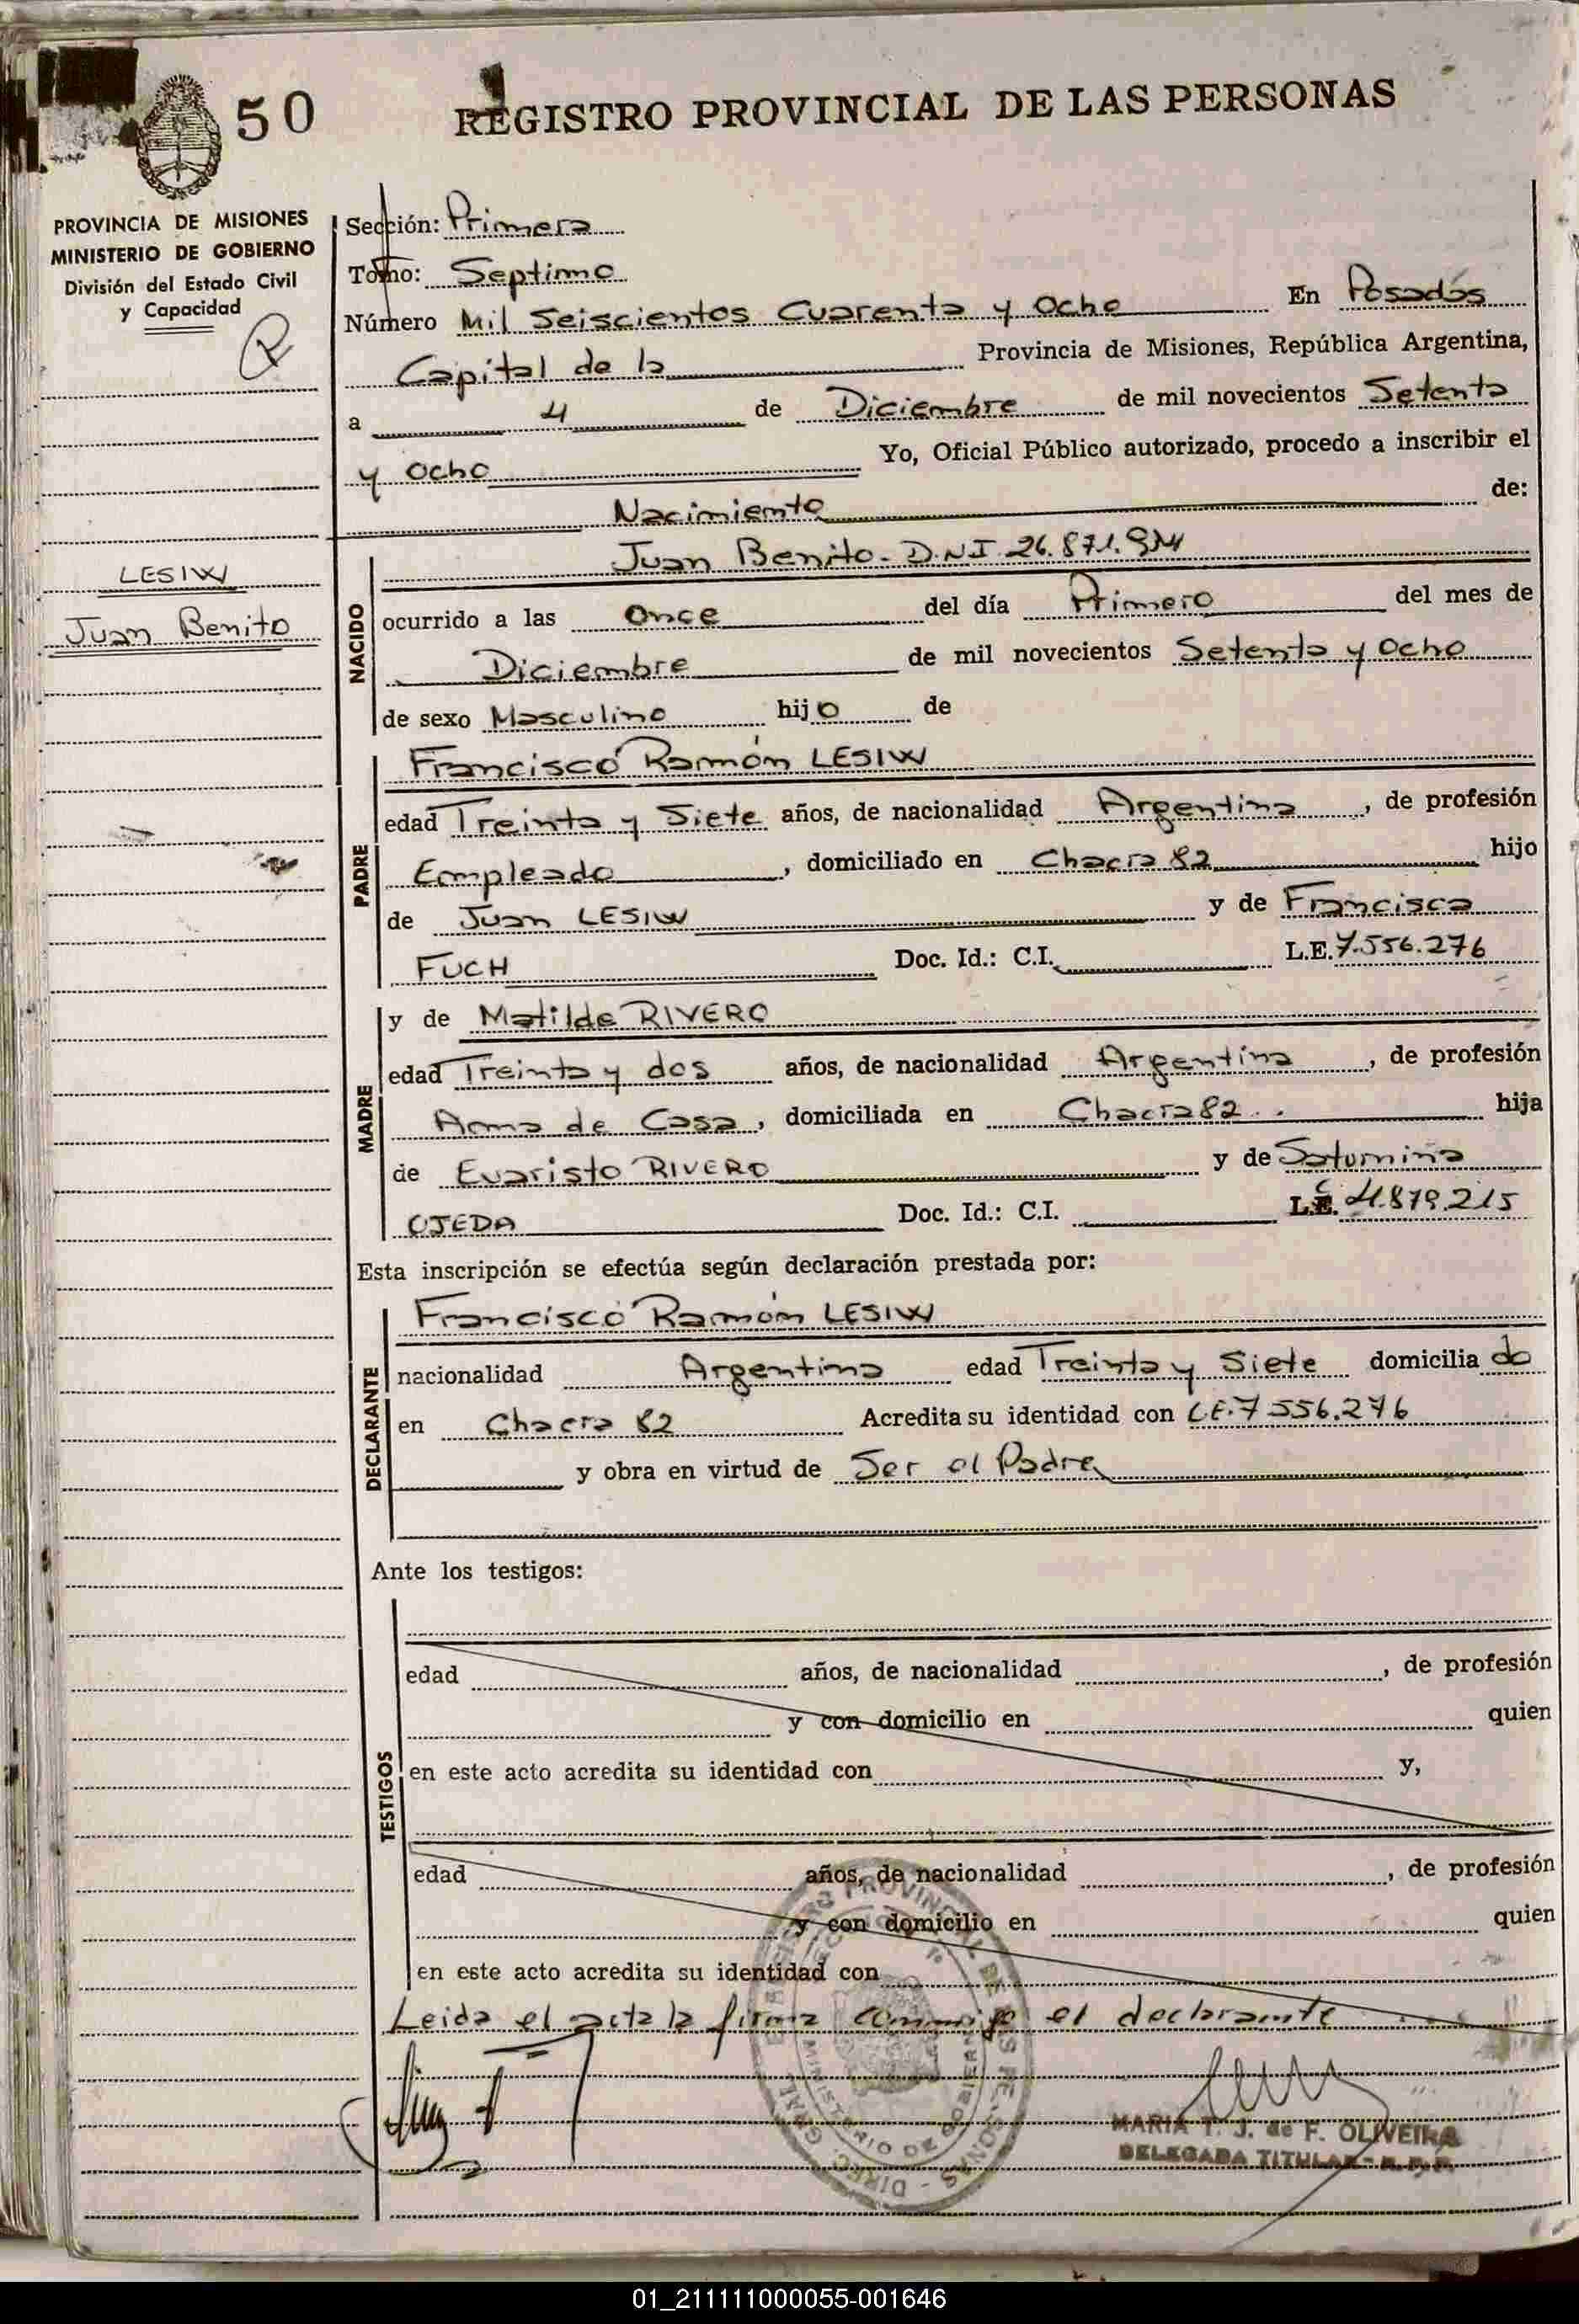 50
REGISTRO PROVINCIAL DE LAS PERSONAS
PROVINCIA DE MISIONES
MINISTERIO DE GOBIERNO
División del Estado Civil
y Capacidad
Sección: Primera
Tomo: Septimo
Número Mil Seiscientos Cuarenta y Ocho En Posadas
Capital de la Provincia de Misiones, República Argentina,
a 4 de Diciembre de mil novecientos Setenta
y Ocho Yo, Oficial Público autorizado, procedo a inscribir el
Nacimiento de:
LESIW
Juan Benito
NACIDO
Juan Benito - D.N.I. 26.871.
ocurrido a las Once del día Primero del mes de
Diciembre de mil novecientos Setenta y Ocho
de sexo Masculino hijo de
PADRE
Francisco Ramón LESIW
edad Treinta y Siete años, de nacionalidad Argentina, de profesión
Empleado, domiciliado en Chacra 82 hijo
de Juan LESIW y de Francisca
FUCH Doc. Id.: C.I. L.E. 7.556.276
MADRE
y de Matilde RIVERO
edad Treinta y dos años, de nacionalidad Argentina, de profesión
Ama de Casa, domiciliada en Chacra 82 hija
de Evaristo RIVERO y de Saturnina
OJEDA Doc. Id.: C.I. L.C. 4.879.215
Esta inscripción se efectúa según declaración prestada por:
DECLARANTE
Francisco Ramón LESIW
nacionalidad Argentina edad Treinta y Siete domiciliado
en Chacra 82 Acredita su identidad con L.E. 7.556.276
y obra en virtud de Ser el Padre
Ante los testigos:
TESTIGOS
edad años, de nacionalidad , de profesión
y con domicilio en quien
en este acto acredita su identidad con y,
edad años, de nacionalidad , de profesión
y con domicilio en quien
en este acto acredita su identidad con
Leida el acta la firma conmigo el declarante
MARIA T. J. de F. OLIVEIRA
DELEGADA TITULAR - R.P.P.
01_211111000055-001646